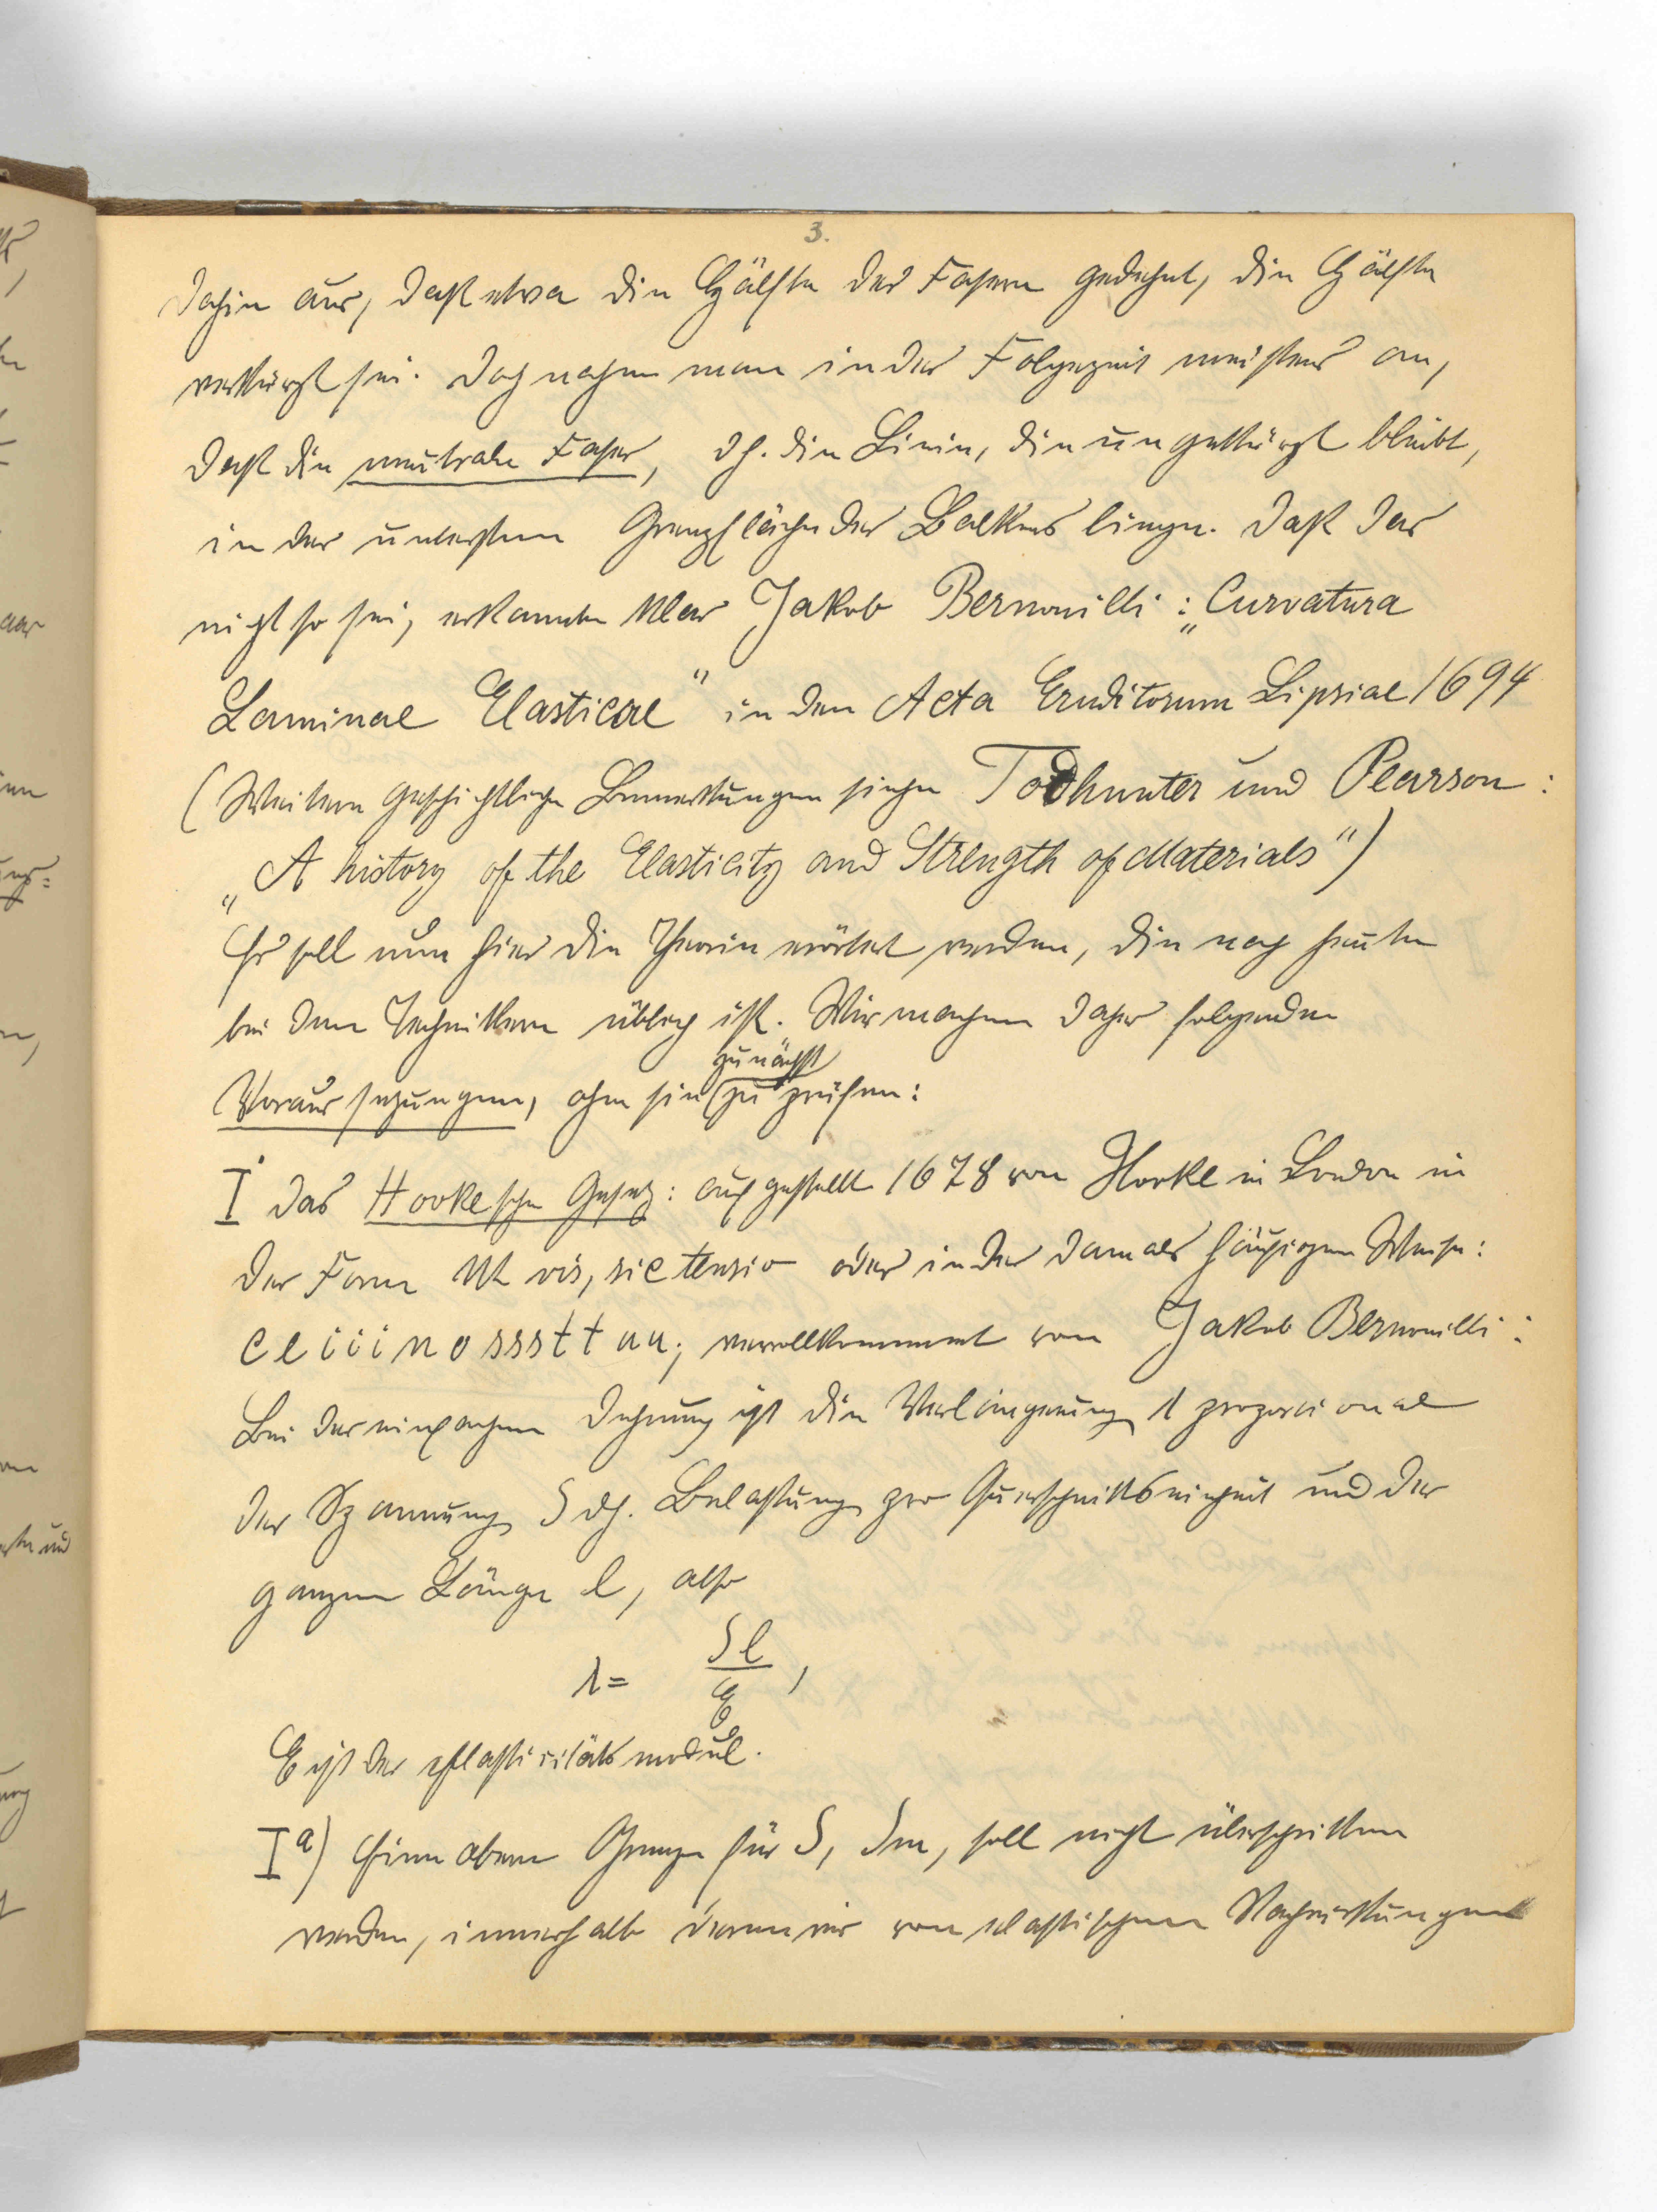 3.
dahin aus, daß etwa die Hälfte der Fasern gedehnt, die Hälfte
verkürzt sei. Doch nahm man in der Folgezeit meistens an,
daß die neutrale Faser, dh. die Linie, die ungekürzt bleibt,
in der untersten Grenzfläche des Balkens liege. Daß das
nicht so sei, erkannte klar Jakob Bernouilli: „Curvatura
Laminae Elasticae" in den Acta Eruditorum Lipsiae 1694
(Weitere geschichtliche Bemerkungen siehe Todhunter und Pearson:
„A history of the Elasticity and Strength of Materials")
Es soll nun hier die Theorie erörtert werden, die noch heute
bei den Technikern üblich ist. Wir machen daher folgende
zunächst
Voraussetzungen, ohne sie zu prüfen:
I das Hookesche Gesetz: aufgestellt 1678 von Hooke in London in
der Form Ut vis, sic tensio oder in der damals häufigen Weise:
c e i i i n o s s s t t u u; vervollkommnet von Jakob Bernouilli:
Bei der einfachen Dehnung ist die Verlängerung λ proporcional
der Spannung S dh. Belastung pro Querschnittseinheit und der
ganzen Länge l, also
λ = Sl/E,
E ist der Elasticitätsmodul.
I a) Eine obere Grenze für S, Sm, soll nicht überschritten
werden, innerhalb deren wir von elastischen Nachwirkungen